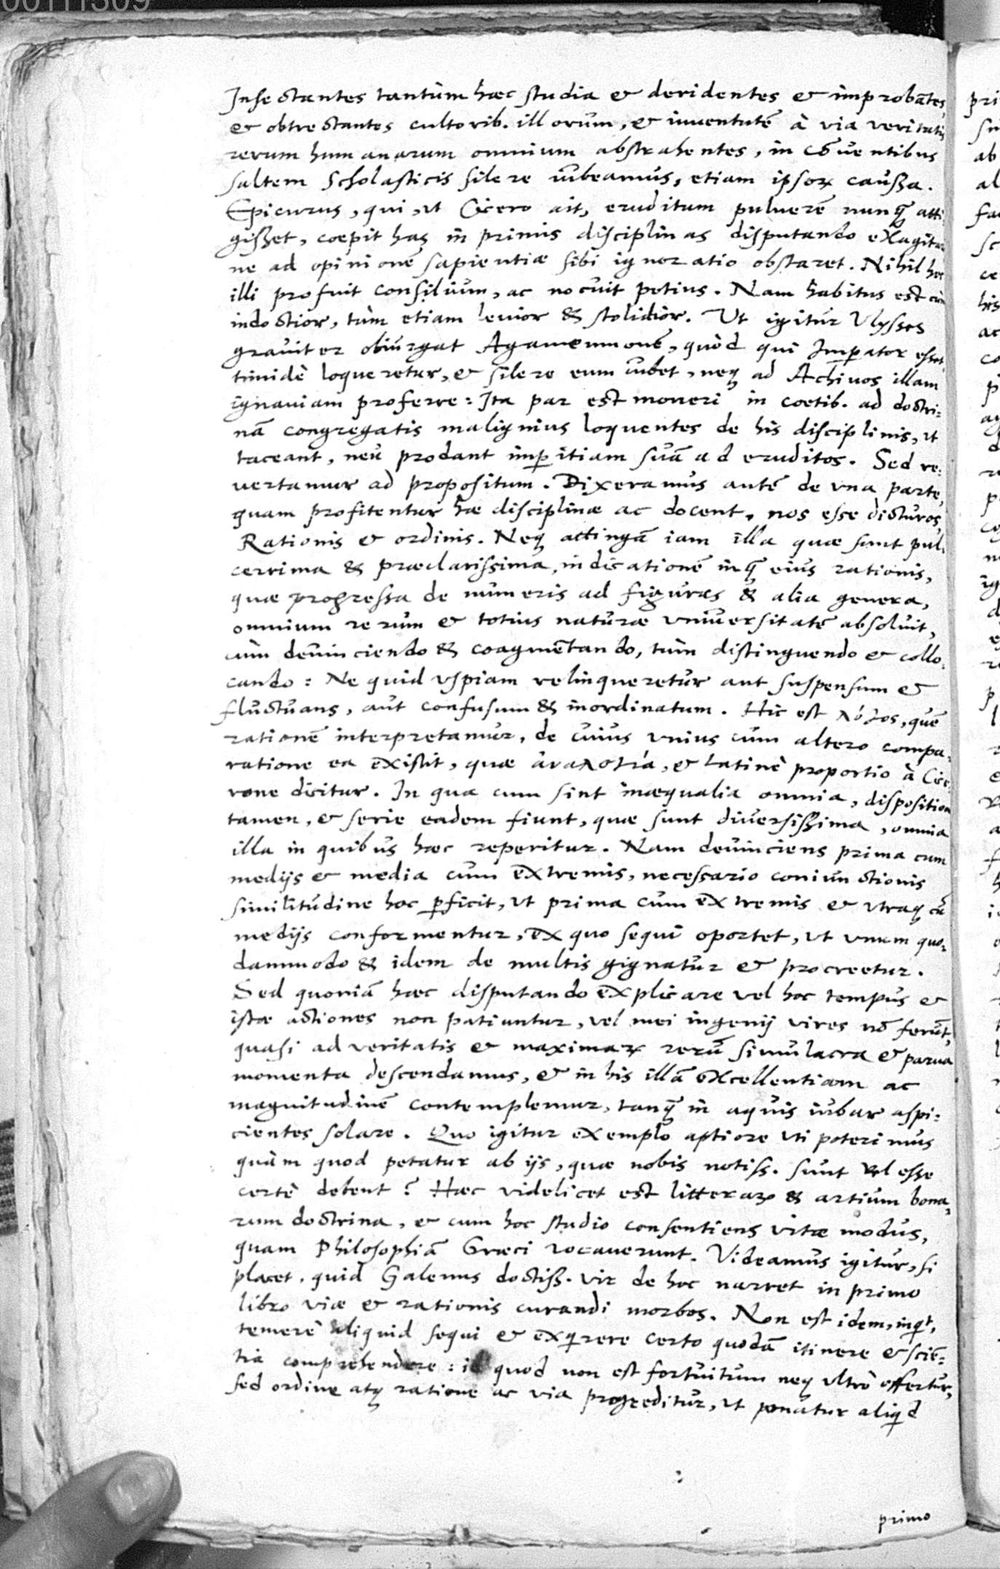 00111309
Insectantes tantùm hæc studia & deridentes & improbãtes,
& obtrectantes cultorib. illorum, & iuventutẽ à via veritatis
rerum humanarum omnium abstrahentes, in cõventibus
saltem Scholasticis silere iubeamus, etiam ipsoꝝ caussa.
Epicurus, qui, ut Cicero ait, eruditum pulverẽ nunq̃ atti
gisset, coepit has in primis disciplinas disputando exagitare
ne ad opinionẽ sapientiæ sibi ignoratio obstaret. Nihil hoc
illi profuit consilium, ac nocuit potius. Nam habitus est cùm
indoctior, tùm etiam levior & stolidior. Ut igitur Ulysses
graviter obiurgat Agamemnonẽ, quòd qui Imperator esset,
timidè loqueretur, & silere eum iubet, neq; ad Achivos illam
ignaviam proferre: Ita par est moneri in coetib. ad doctri:
nã congregatis malignius loquentes de his disciplinis, ut
taceant, neu prodant imperitiam suã ad eruditos. Sed re:
vertamur ad propositum. Dixeramus autẽ de una parte,
quam profitentur hæ disciplinæ ac docent, nos esse dicturos,
Rationis & ordinis. Neq; attingã iam illa quæ sunt pul:
cerrima & præclarissima, indicationẽ inq̃ eius rationis,
quæ progressa de numeris ad figuras & alia genera,
omnium rerum & totius naturæ universitatẽ absoluit,
cùm devinciendo & coagmẽtando, tùm distinguendo & collo:
cando: Ne quid uspiam relinqueretur aut suspensum &
fluctuans, aut confusum & inordinatum. Hic est λόγος, quẽ
rationẽ interpretamur, de cuius unius cum altero compa:
ratione ea existit, quæ ἀναλογία, & latinè proportio à Cice
rone dicitur. In qua cum sint inæqualia omnia, dispositione
tamen, & serie eadem fiunt, quæ sunt diversissima, omnia
illa in quibus hæc reperitur. Nam devinciens prima cum
medijs & media cum extremis, necessario coniunctionis
similitudine hoc perficit, ut prima cum extremis & utraq; cũ
medijs conformentur, ex quo sequi oportet, ut unum quo:
dammodo & idem de multis gignatur & procreetur.
Sed quoniã hæc disputando explicare vel hoc tempus &
istæ actiones non patiuntur, vel mei ingenij vires nõ ferũt,
quasi ad veritatis & maximaꝝ rerũ simulacra & parva
momenta descendamus, & in his illã excellentiam ac
magnitudinẽ contemplemur, tanq̃ in aquis iubar aspi:
cientes solare. Quo igitur exemplo aptiore uti poterimus
quàm quod petatur ab ijs, quæ nobis notiss. sunt vel esse
certè debent? Hæc videlicet est litteraꝝ & artium bona:
rum doctrina, & cum hoc studio consentiens vitæ modus,
quam Philosophiã Græci vocaverunt. Videamus igitur, si
placet, quid Galenus doctiss. vir de hoc narret in primo
libro viæ & rationis curandi morbos. Non est idem, inqt,
temerè aliquid sequi & exquirere certo quodã itinere & sciẽ:
tia comprehendere: id quod non est fortuitum neq; ultrò offertur,
sed ordine atq; ratione ac via progreditur, ut ponatur aliqd
primo
pri